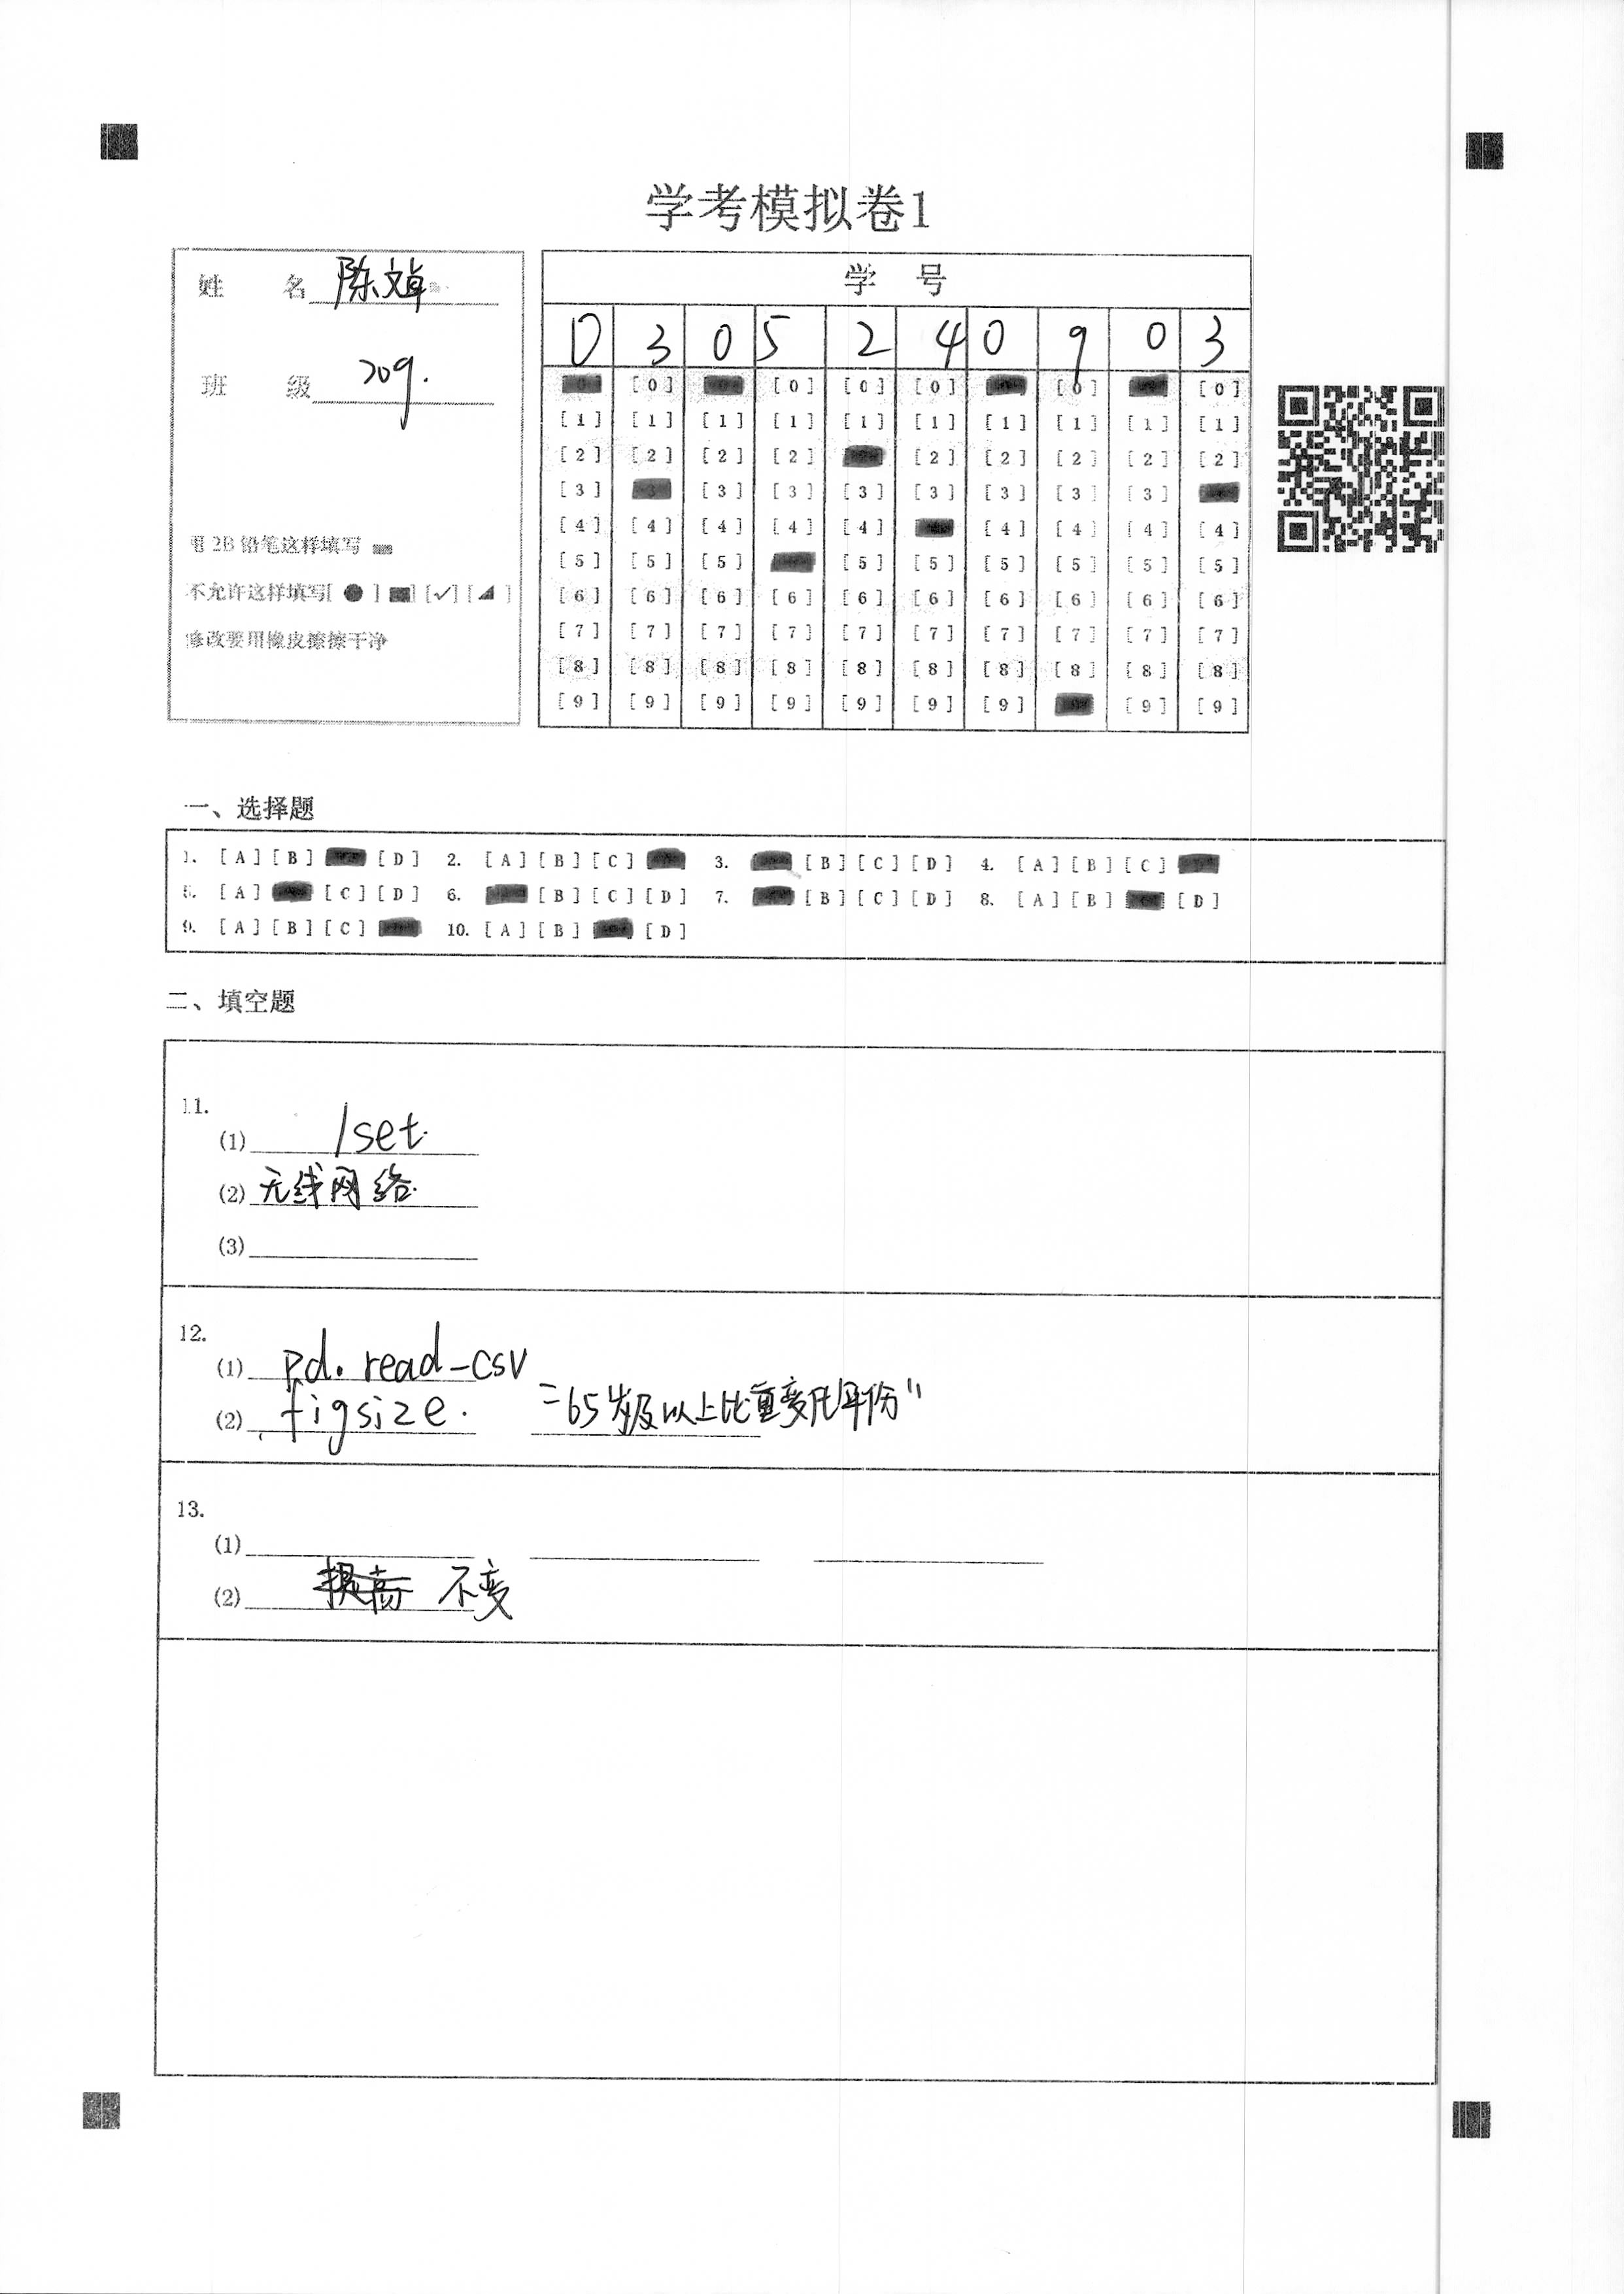 学考模拟卷1
姓 名 陈文卓
班 级 209.
用2B铅笔这样填写
不允许这样填写[●] [✓] [◢]
修改要用橡皮擦擦干净
学 号
0 3 0 5 2 4 0 9 0 3
[0] [0] [0] [0] [0] [0]
[1] [1] [1] [1] [1] [1] [1] [1] [1] [1]
[2] [2] [2] [2] [2] [2] [2] [2] [2]
[3] [3] [3] [3] [3] [3] [3] [3]
[4] [4] [4] [4] [4] [4] [4] [4] [4]
[5] [5] [5] [5] [5] [5] [5] [5] [5]
[6] [6] [6] [6] [6] [6] [6] [6] [6] [6]
[7] [7] [7] [7] [7] [7] [7] [7] [7] [7]
[8] [8] [8] [8] [8] [8] [8] [8] [8] [8]
[9] [9] [9] [9] [9] [9] [9] [9] [9]
一、选择题
1. [A] [B] [D] 2. [A] [B] [C] 3. [B] [C] [D] 4. [A] [B] [C]
5. [A] [C] [D] 6. [B] [C] [D] 7. [B] [C] [D] 8. [A] [B] [D]
9. [A] [B] [C] 10. [A] [B] [D]
二、填空题
11.
(1) /set.
(2) 无线网络.
(3)
12.
(1) pd. read_csv
(2) figsize. "65岁及以上比重变化年份"
13.
(1)
(2) 提高 不变